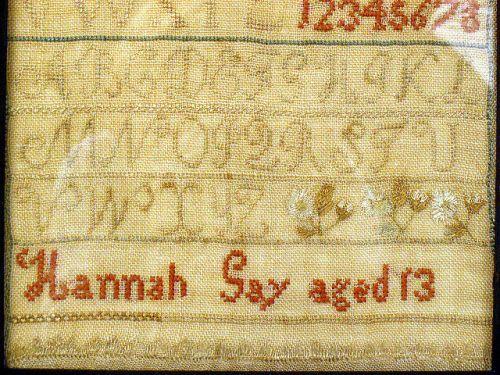 12345678
A B C D E F G H I K L
M N O P Q R S T U
V W X Y Z
Hannah Gay aged 13